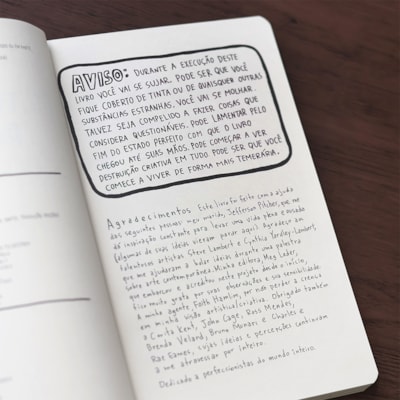 AVISO: DURANTE A EXECUÇÃO DESTE
LIVRO VOCÊ VAI SE SUJAR. PODE SER QUE VOCÊ
FIQUE COBERTO DE TINTA OU DE QUAISQUER OUTRAS
SUBSTÂNCIAS ESTRANHAS. VOCÊ VAI SE MOLHAR.
TALVEZ SEJA COMPELIDO A FAZER COISAS QUE
CONSIDERA QUESTIONÁVEIS. PODE LAMENTAR PELO
FIM DO ESTADO PERFEITO COM QUE O LIVRO
CHEGOU ATÉ SUAS MÃOS. PODE COMEÇAR A VER
DESTRUIÇÃO CRIATIVA EM TUDO. PODE SER QUE VOCÊ
COMECE A VIVER DE FORMA MAIS TEMERÁRIA.
Agradecimentos Este livro foi feito com a ajuda
das seguintes pessoas: meu marido, Jefferson Pitcher, que me
dá inspiração constante para levar uma vida plena e ousada
(algumas de suas ideias vieram parar aqui). Agradeço aos
talentosos artistas Steve Lambert e Cynthia Yardley-Lambert,
que me ajudaram a bolar ideias durante uma palestra
sobre arte contemporânea. Minha editora, Meg Leder,
que embarcou e acreditou neste projeto desde o início,
fico muito grata por suas observações e sua sensibilidade.
A minha agente, Faith Hamlin, por não perder a crença
em minha visão artística/criativa. Obrigado também
a Corita Kent, John Cage, Ross Mendes,
Brenda Ueland, Bruno Munari e Charles e
Rae Eames, cujas ideias e percepções continuam
a me atravessar por inteiro.
Dedicado a perfeccionistas do mundo inteiro.